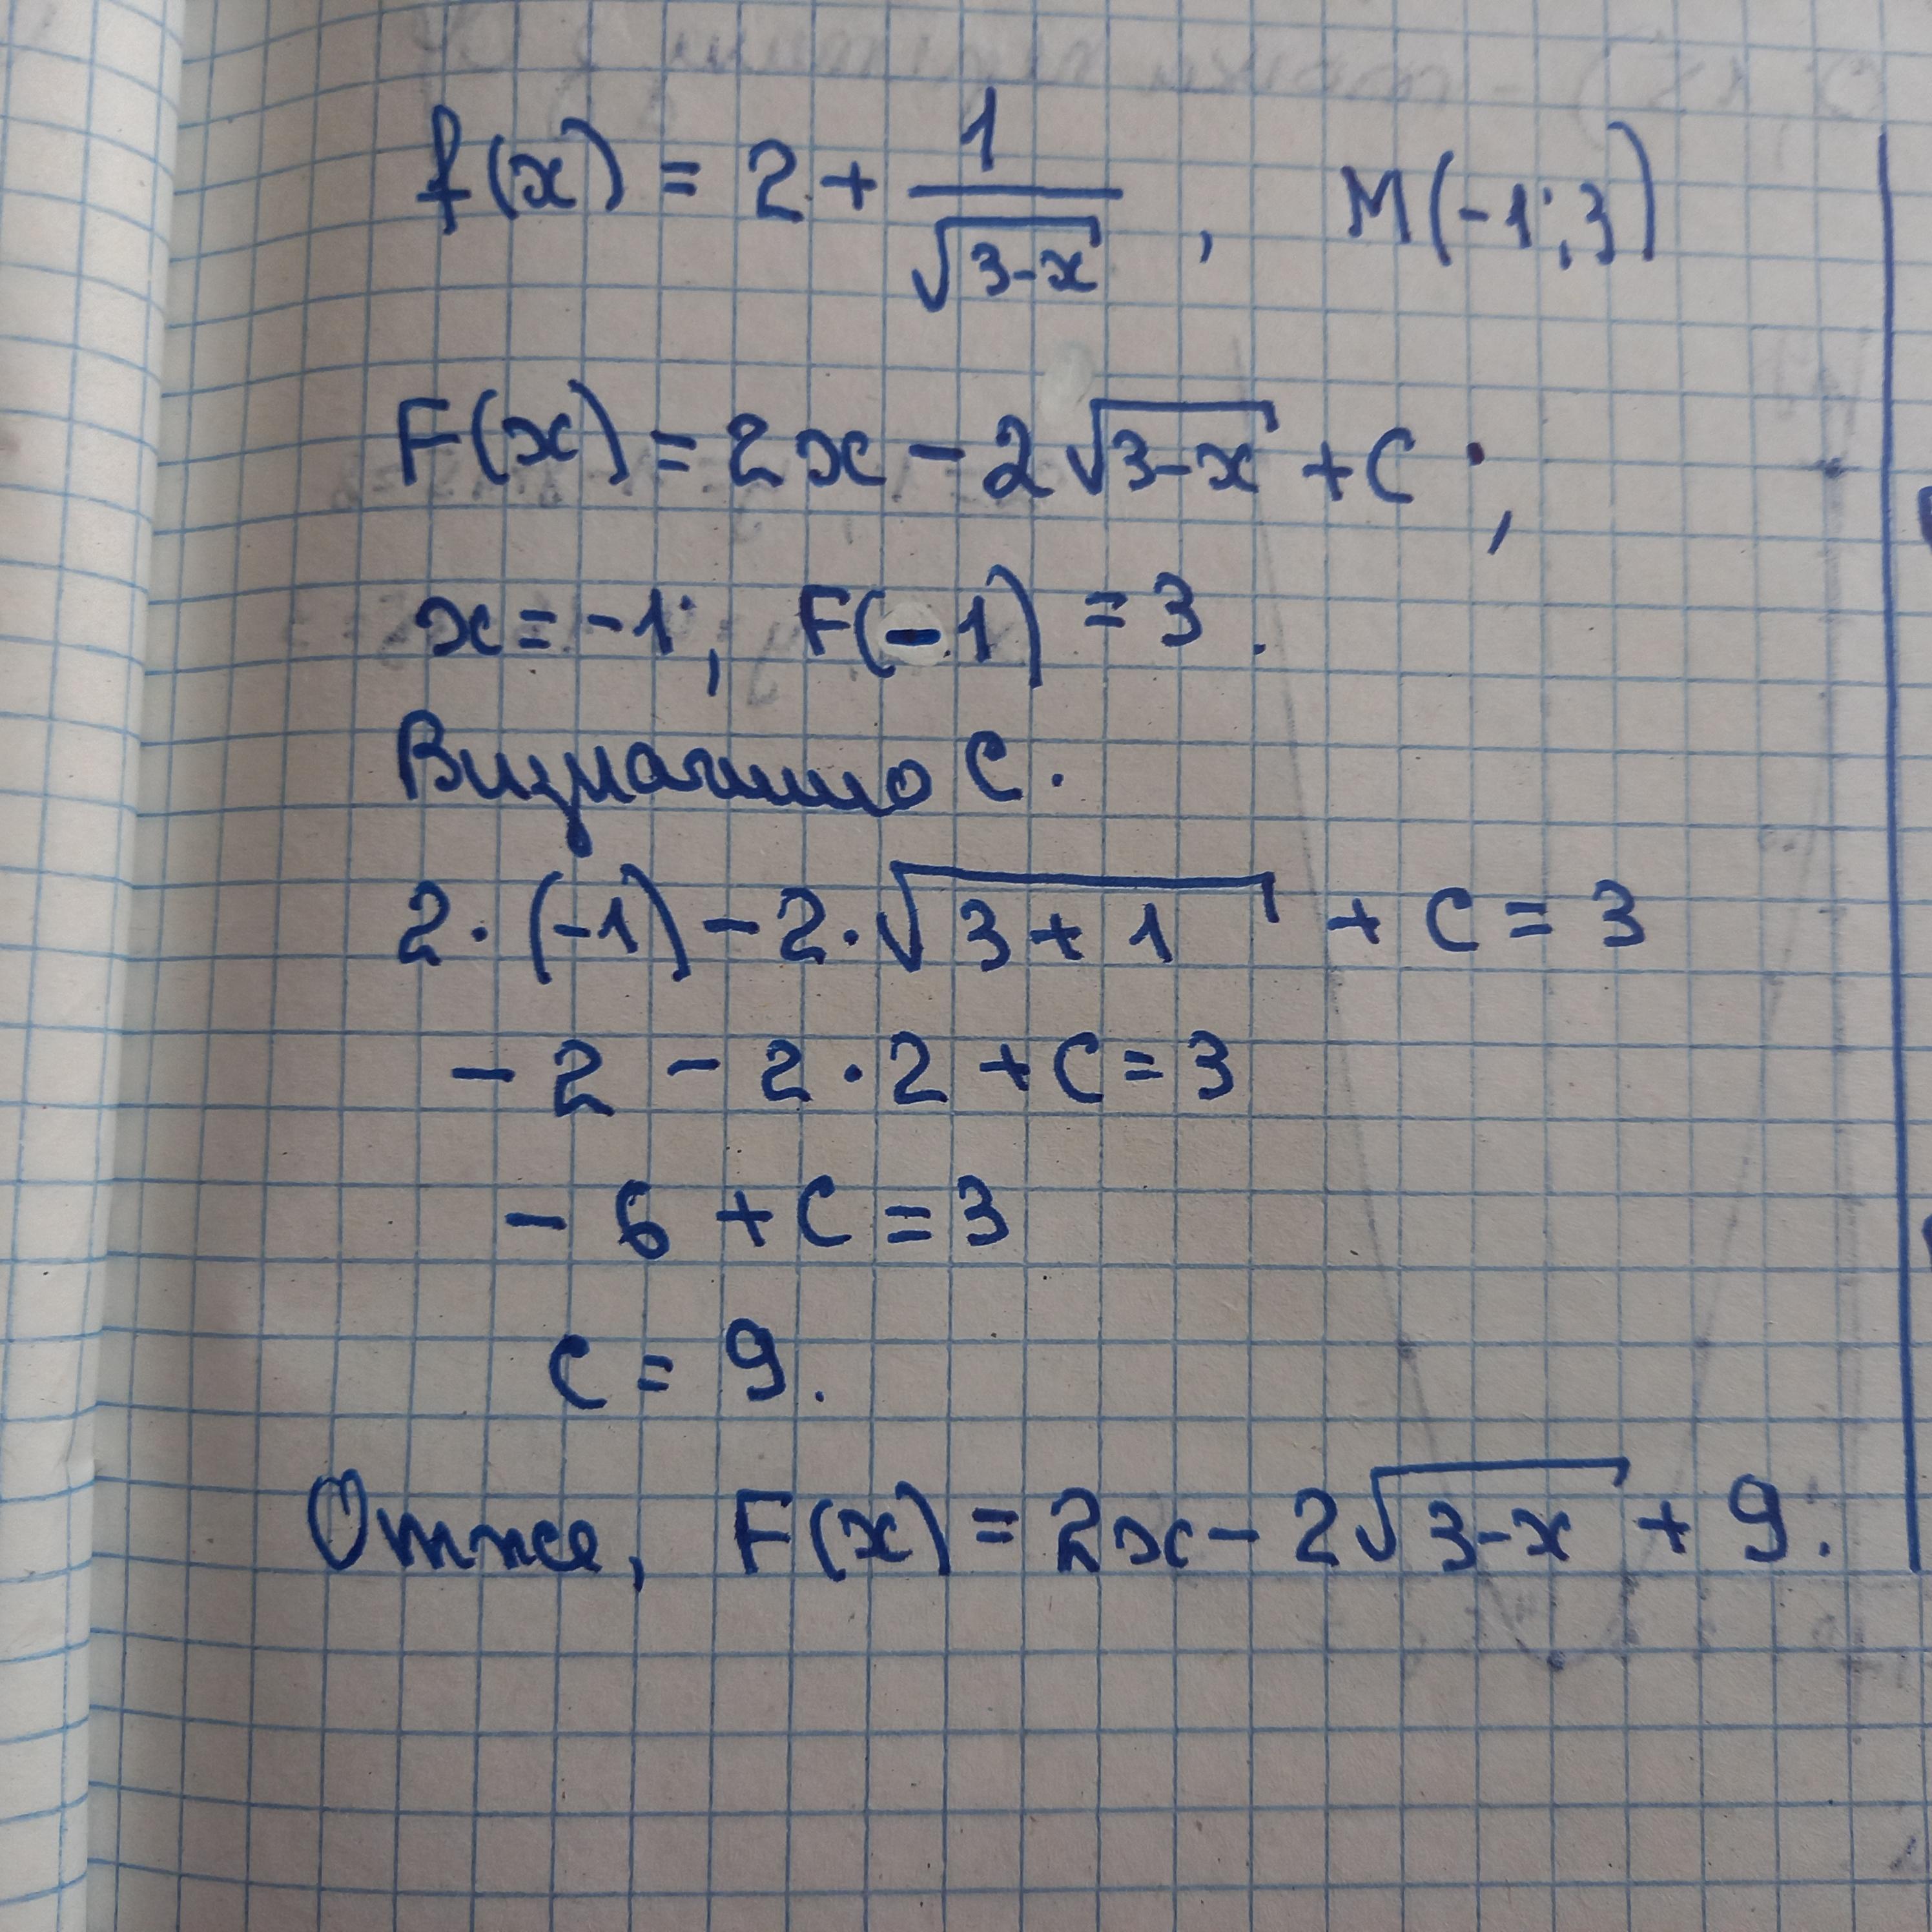 f(x) = 2 + 1/√(3-x) , M(-1; 3)
F(x) = 2x - 2√(3-x) + C ;
x = -1; F(-1) = 3 .
Визначимо C .
2 · (-1) - 2 · √(3 + 1) + C = 3
- 2 - 2 · 2 + C = 3
- 6 + C = 3
C = 9 .
Отже, F(x) = 2x - 2√(3-x) + 9 .